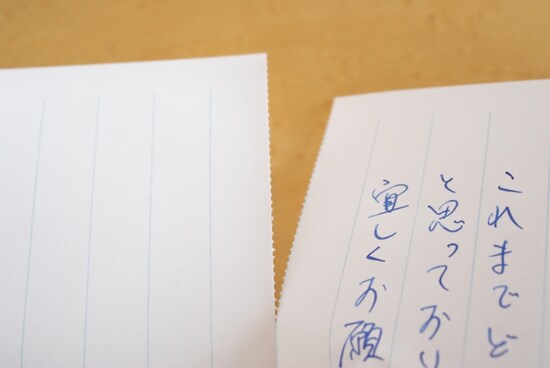 これまでど
と思っており
宜しくお願